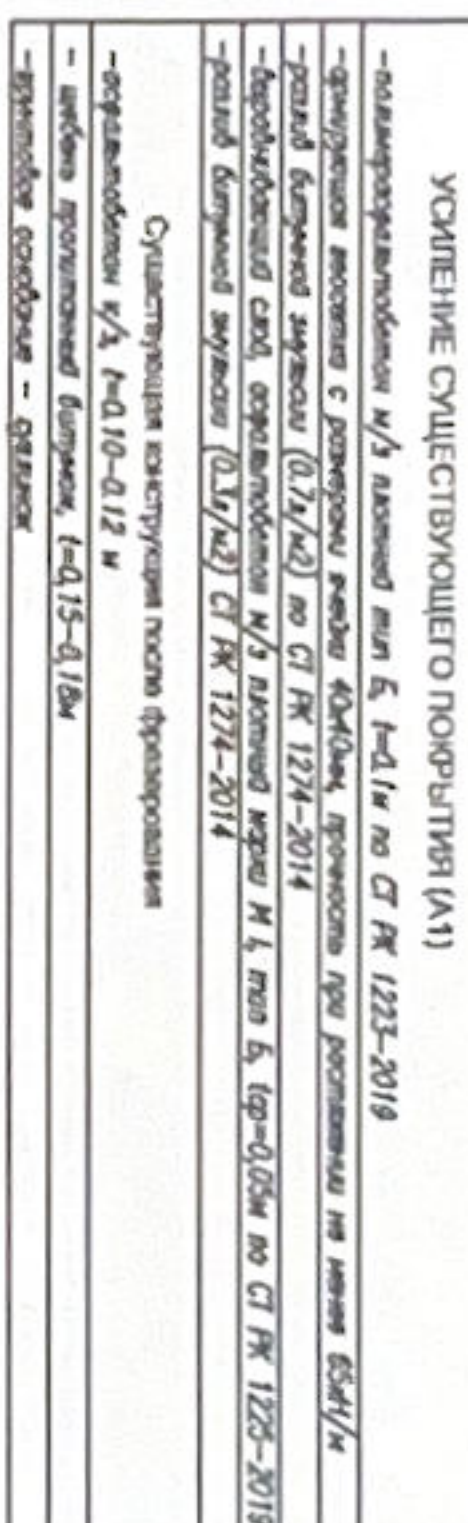 УСИЛЕНИЕ СУЩЕСТВУЮЩЕГО ПОКРЫТИЯ (А1)
-полимерасфальтобетон м/з плотный тип Б, t=0,1м по СТ РК 1223-2019
-армирующая геосетка с размерами ячейки 40х40мм, прочность при растяжении не менее 65кН/м
-розлив битумной эмульсии (0.7л/м2) по СТ РК 1274-2014
-выравнивающий слой, асфальтобетон м/з плотный марки М I, тип Б, tср=0,05м по СТ РК 1225-2019
-розлив битумной эмульсии СТ РК 1274-2014
Существующая конструкция после фрезерования
-асфальтобетон к/з, t=0.10-0.12 м
- щебень пропитанный битумом, t=0,15-0,18м
-грунтовое основание - суглинок